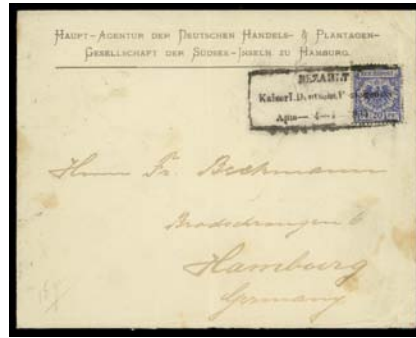 HAUPT-AGENTUR DER DEUTSCHEN HANDELS- & PLANTAGEN-
GESELLSCHAFT DER SÜDSEE-INSELN ZU HAMBURG.
BEZAHLT
Kaiserl. Deutsche
Apia
20
Herrn Fr. Beckmann
6
Hamburg
Germany